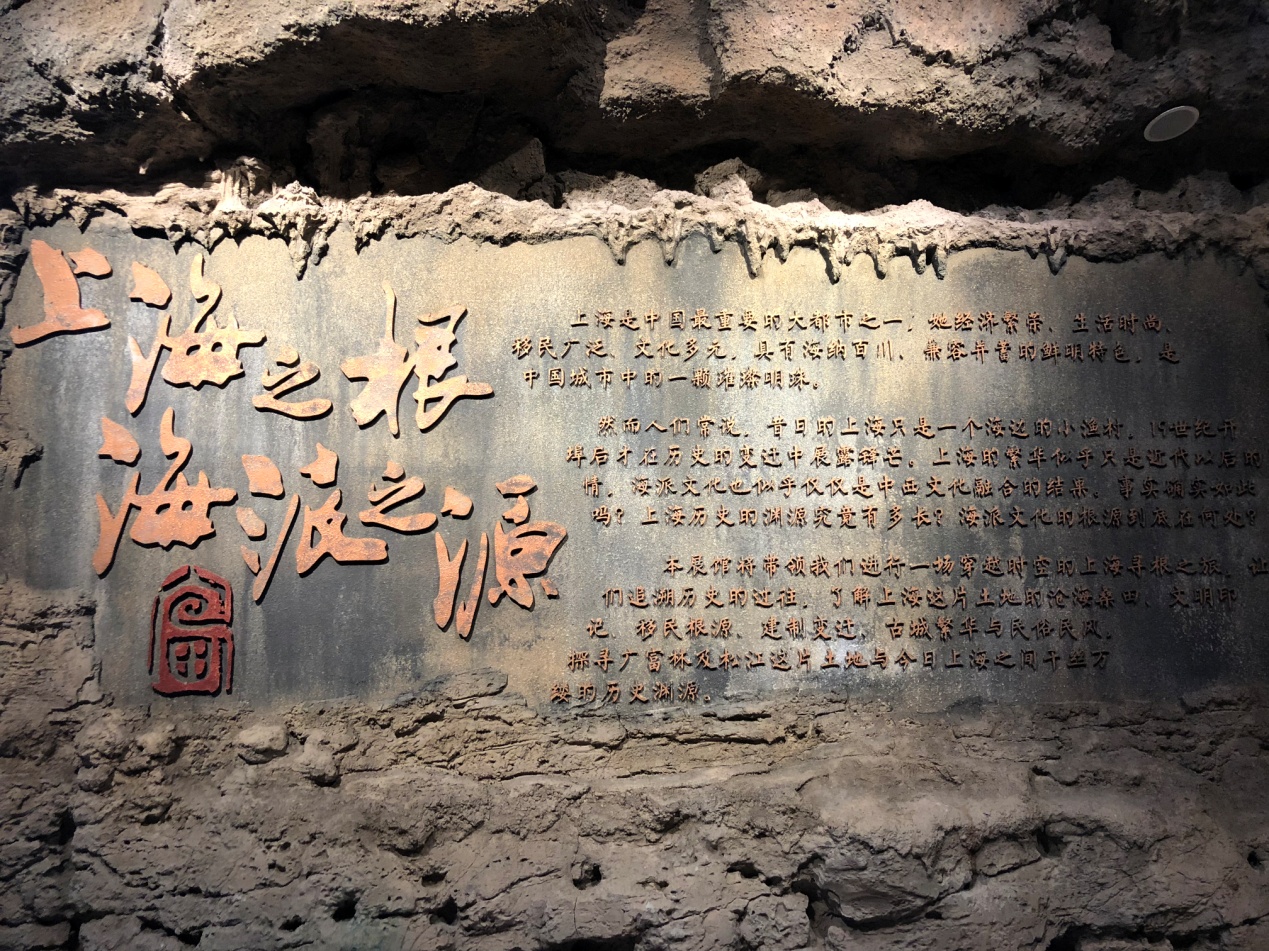 上海之根
海派之源
上海是中国最重要的大都市之一，她经济繁荣、生活时尚、
移民广泛、文化多元，具有海纳百川、兼容并蓄的鲜明特色，是
中国城市中的一颗璀璨明珠。
然而人们常说，昔日的上海只是一个海边的小渔村，19世纪开
埠后才在历史的变迁中展露锋芒。上海的繁华似乎只是近代以后的
情，海派文化也似乎仅仅是中西文化融合的结果。事实确实如此
吗？上海历史的渊源究竟有多长？海派文化的根源到底在何处？
本展馆将带领我们进行一场穿越时空的上海寻根之旅，让
们追溯历史的过往，了解上海这片土地的沧海桑田、文明印
记、移民根源、建制变迁、古城繁华与民俗民风，
探寻广富林及松江这片土地与今日上海之间千丝万
缕的历史渊源。